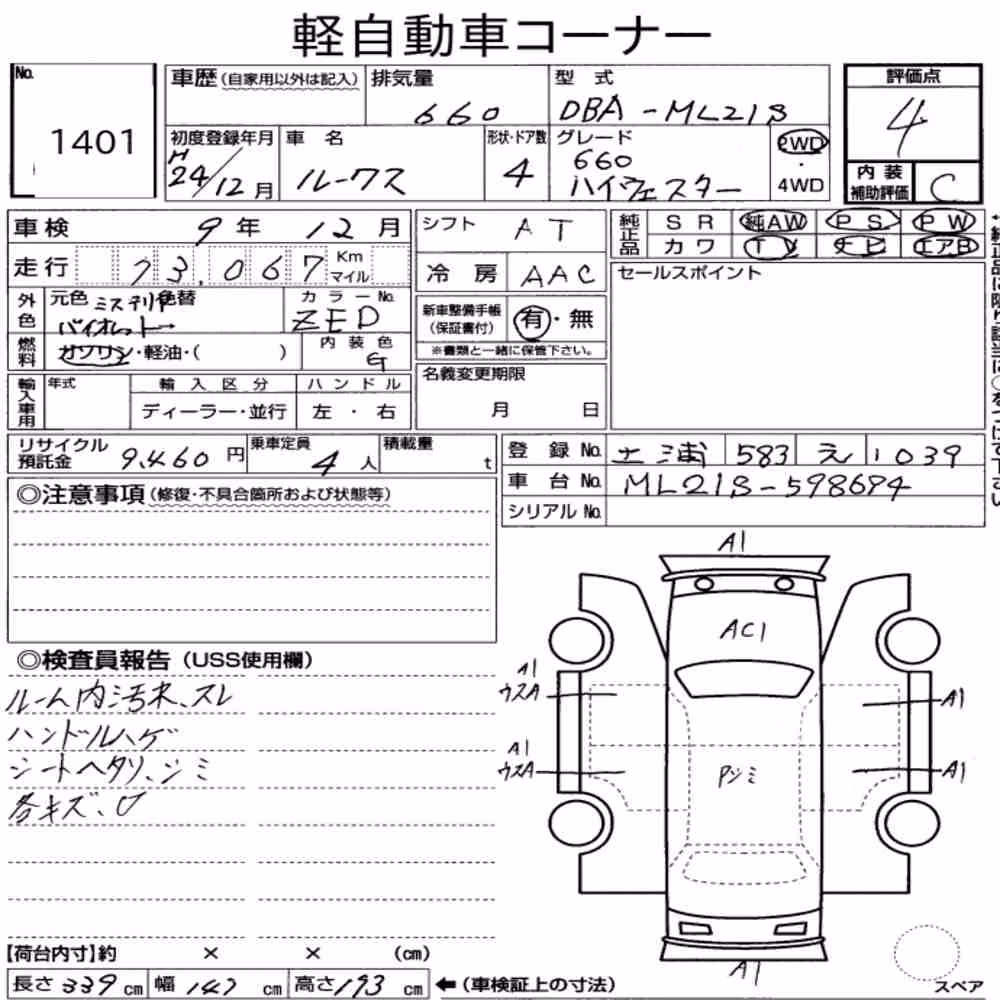 軽自動車コーナー
No. 1401
車歴(自家用以外は記入)
排気量 660
型式 DBA-ML21S
評価点 4
初度登録年月 H24/12月
車名 ルークス
形状・ドア数 4
グレード 660 ハイウェスター
2WD・4WD
内装補助評価 C
車検 9年 12月
シフト AT
純正品 SR 純AW PS PW
カワ TV ナビ エアB
走行 73,067 Km マイル
冷房 AAC
セールスポイント
外色 元色 ミステリア 色替
バイオレット→
カラーNo. ZED
新車整備手帳(保証書付) 有・無
※書類と一緒に保管下さい。
燃料 ガソリン・軽油・( )
内装色 G
名義変更期限 月 日
輸入車用 年式
輸入区分 ディーラー・並行
ハンドル 左・右
リサイクル預託金 9,460円
乗車定員 4人
積載量 t
登録No. 土浦 583 え 1039
車台No. ML21S-598694
シリアルNo.
◎注意事項(修復・不具合箇所および状態等)
◎検査員報告(USS使用欄)
ルーム内汚れ、スレ
ハンドルハゲ
シートヘタリ、シミ
各キズ、U
A1
AC1
A1
ウスA
A1
A1
ウスA
Pシミ
A1
A1
スペア
【荷台内寸】約 × × (cm)
長さ 339 cm 幅 147 cm 高さ 173 cm ←(車検証上の寸法)